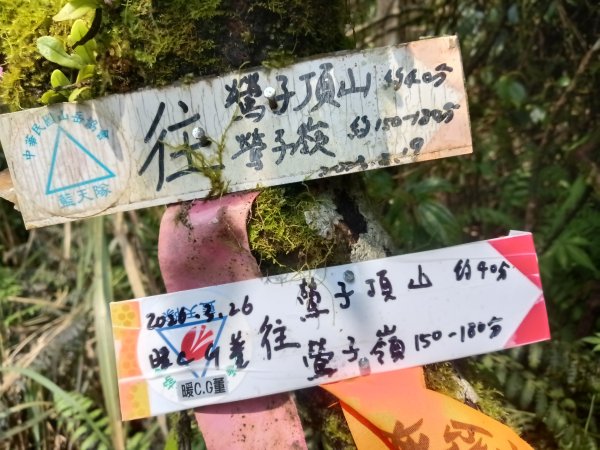 中華民國山岳協會
藍天隊
往
鶯子頂山 約40分
鶯子嶺 約150-180分
往
鶯子頂山 約40分
鶯子嶺 150-180分
暖C.G董
暖C.G董